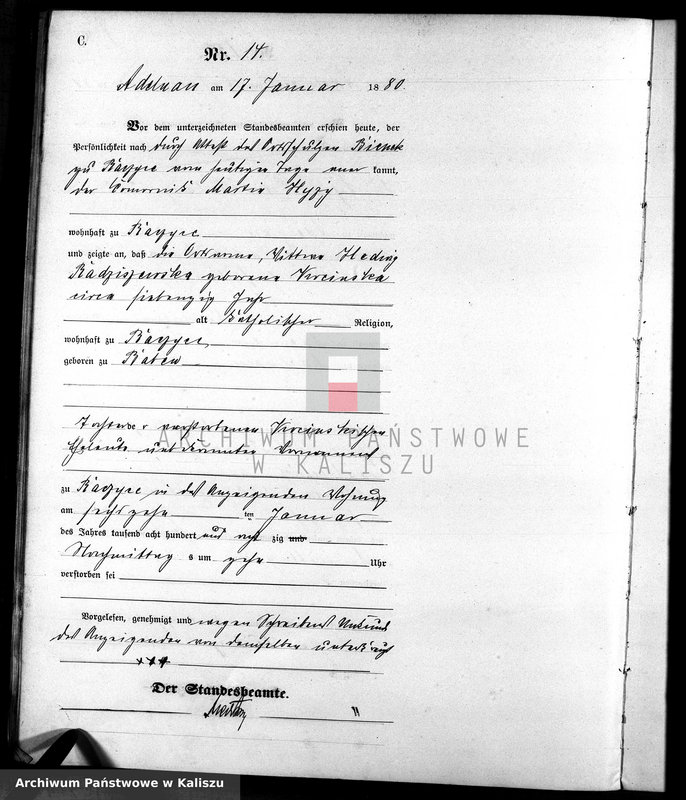 C.
Nr. 14.
Adelnau am 17. Januar 1880.
Vor dem unterzeichneten Standesbeamten erschien heute, der
Persönlichkeit nach durch Attest des Ortsschulzen
zu vom heutigen Tage aner kannt,
der Komornik Martin Hyzy
wohnhaft zu
und zeigte an, daß die Ortsarme, Wittwe Hedwig
Radziszewska geborene
circa siebenzig Jahr
alt katholischer Religion,
wohnhaft zu
geboren zu
Tochter der verstorbenen
Eheleute unbekannten Vornamens
zu in des Anzeigenden Wohnung
am sechszehn ten Januar
des Jahres tausend acht hundert und acht zig und
Nachmittag s um zehn Uhr
verstorben sei
Vorgelesen, genehmigt und wegen Schreibens Unkunde
des Anzeigenden von demselben unterkreuzt
+++
Der Standesbeamte.
ARCHIWUM PAŃSTWOWE
W KALISZU
Archiwum Państwowe w Kaliszu